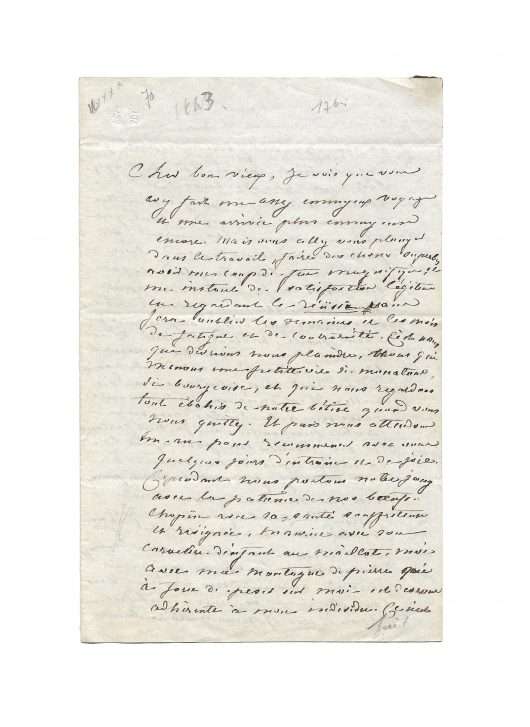 70 1843.
Cher bon vieux, je vois que vous
avez fait un assez ennuyeux voyage
et une arrivée plus ennuyeuse
encore. Mais vous allez vous plonger
dans le travail, faire des choses superbes
avoir un coup de feu magnifique et
un instant de satisfaction légitime
en regardant le
fera oublier les semaines et les mois
de fatigue et de contrariété. C'est nous
que devrions nous plaindre, nous qui
menons une petite vie de
de bourgeoise, et qui nous regardons
tout ébahis de notre bêtise quand vous
nous quittez. Et puis nous attendons
pour recommencer avec vous
quelques jours d'entrain et de joie.
Cependant nous portons notre joug
avec la patience de nos boeufs.
Chopin avec sa santé souffreteuse
et résignée, Maurice avec son
caractère d'enfant au maillot, moi
avec ma montagne de pierre qui
à force de peser sur moi est devenue
adhérente à mon individu. Ce